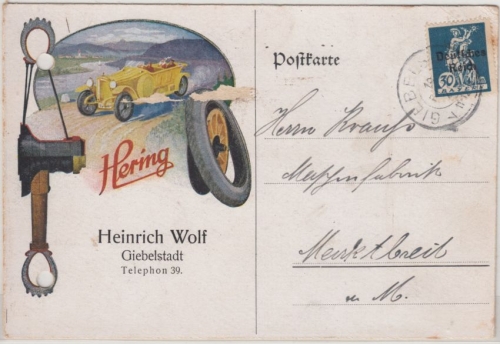 Postkarte
Deutsches
Reich
50
BAYERN
GIEBEL
Hering
Heinrich Wolf
Giebelstadt
Telephon 39.
Herrn Krauß
Maschinenfabrik
Marktbreit
a. M.